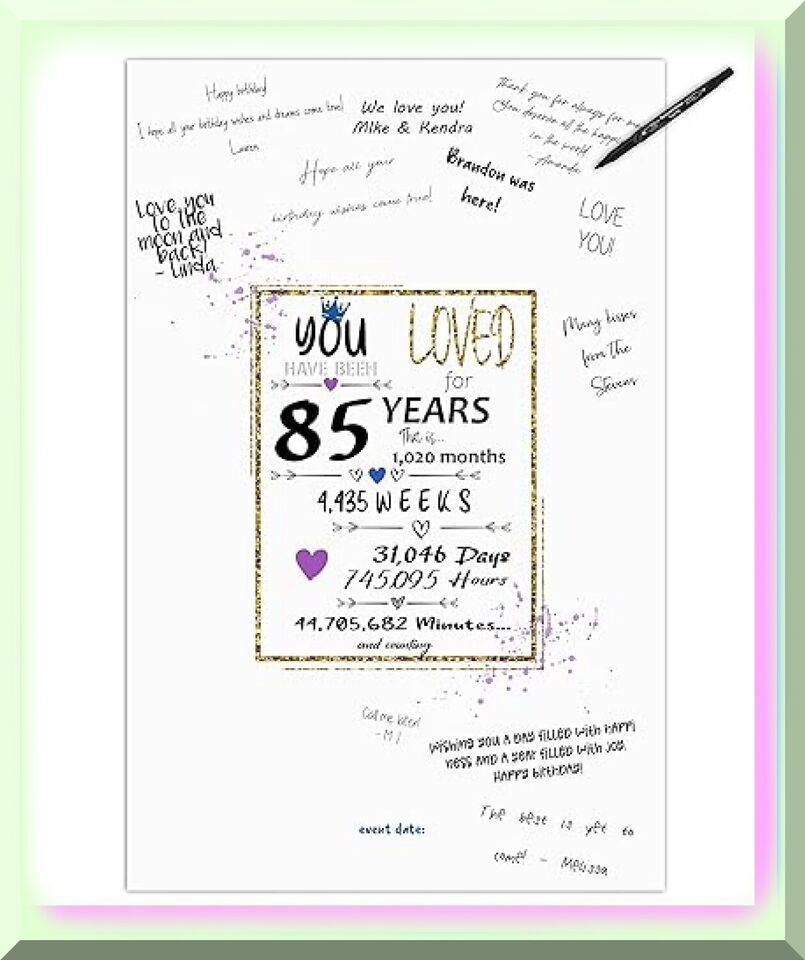 Happy birthday!
I hope all your birthday wishes and dreams come true!
Lauren
We love you!
Mike & Kendra
Thank you for always for me
You deserve all the happi
in the world
- Amanda
Hope all your
birthday wishes come true!
Brandon was
here!
Love you
to the
moon and
back!
- Linda
LOVE
YOU!
Many kisses
from the
Stevens
YOU
HAVE BEEN
LOVED
for
85 YEARS
That is...
1,020 months
4,435 WEEKS
31,046 Days
745,095 Hours
44,705,682 Minutes...
and counting
Call me later!
- M
Wishing you a day filled with happi
ness and a year filled with joy.
Happy birthday!
The best is yet to
come! - Melissa
event date: